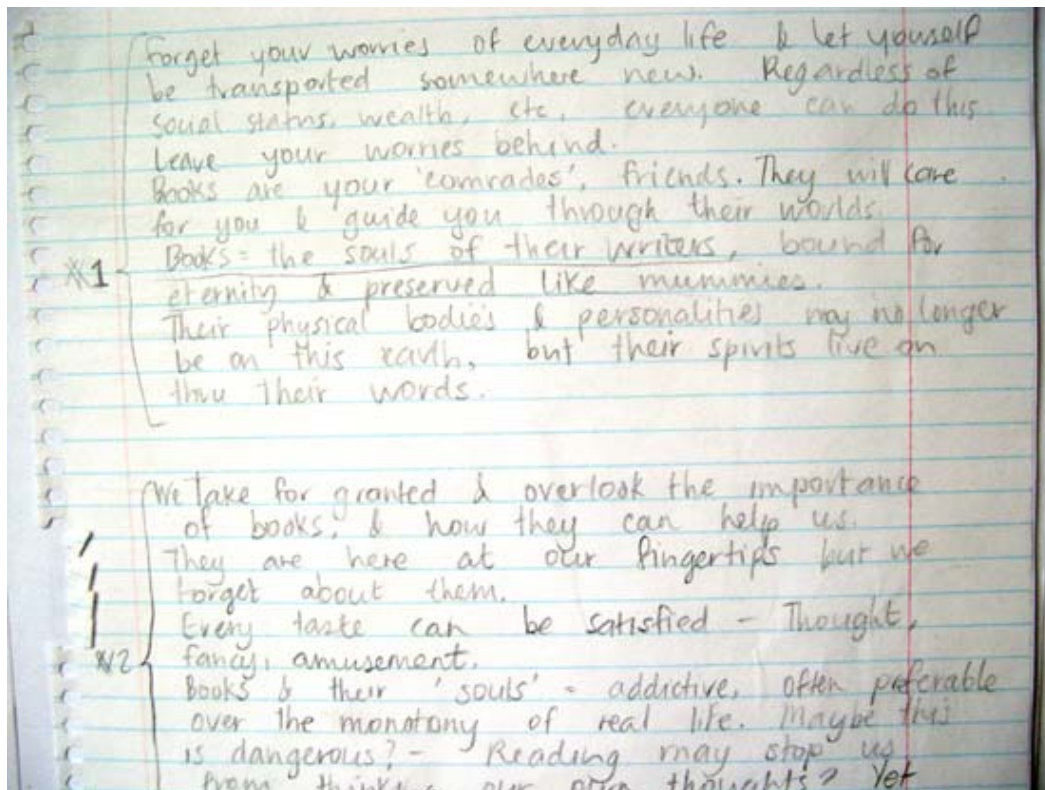 Forget your worries of everyday life & let youself
be transported somewhere new. Regardless of
social status, wealth, etc, everyone can do this
Leave your worries behind.
Books are your 'comrades', friends. They will care
for you & guide you through their worlds.
Books = the souls of their writers, bound for
#1
eternity & preserved like mummies.
Their physical bodies & personalities may no longer
be on this earth, but their spirits live on
thru their words.
We take for granted & overlook the importance
of books, & how they can help us.
They are here at our fingertips but we
forget about them.
Every taste can be satisfied - Thought,
#2
fancy, amusement.
Books & their 'souls' - addictive, often preferable
over the monotony of real life. Maybe this
is dangerous? - Reading may stop us
from thinking our own thoughts? Yet